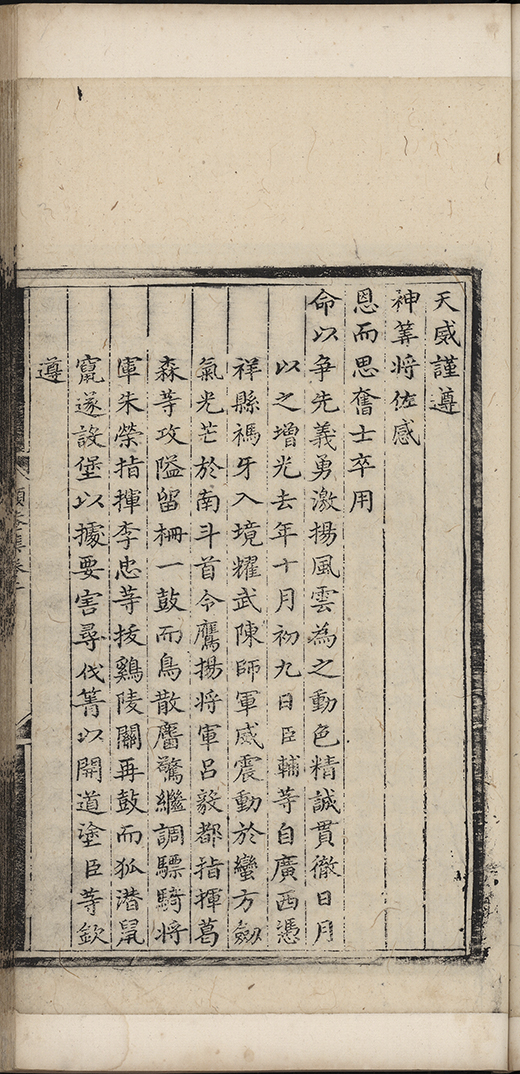 天威謹遵
神筭將佐感
恩而思奮士卒用
命以爭先義勇激揚風雲為之動色精誠貫徹日月
以之增光去年十月初九日臣輔等自廣西憑
祥縣禡牙入境耀武陳師軍威震動於蠻方劒
氣光芒於南斗首令鷹揚將軍呂毅都指揮葛
森等攻隘留柵一鼓而鳥散麕驚繼調驃騎將
軍朱榮指揮李忠等拔鷄陵關再鼓而狐潜鼠
竄遂設堡以據要害尋伐箐以開道塗臣等欽
遵